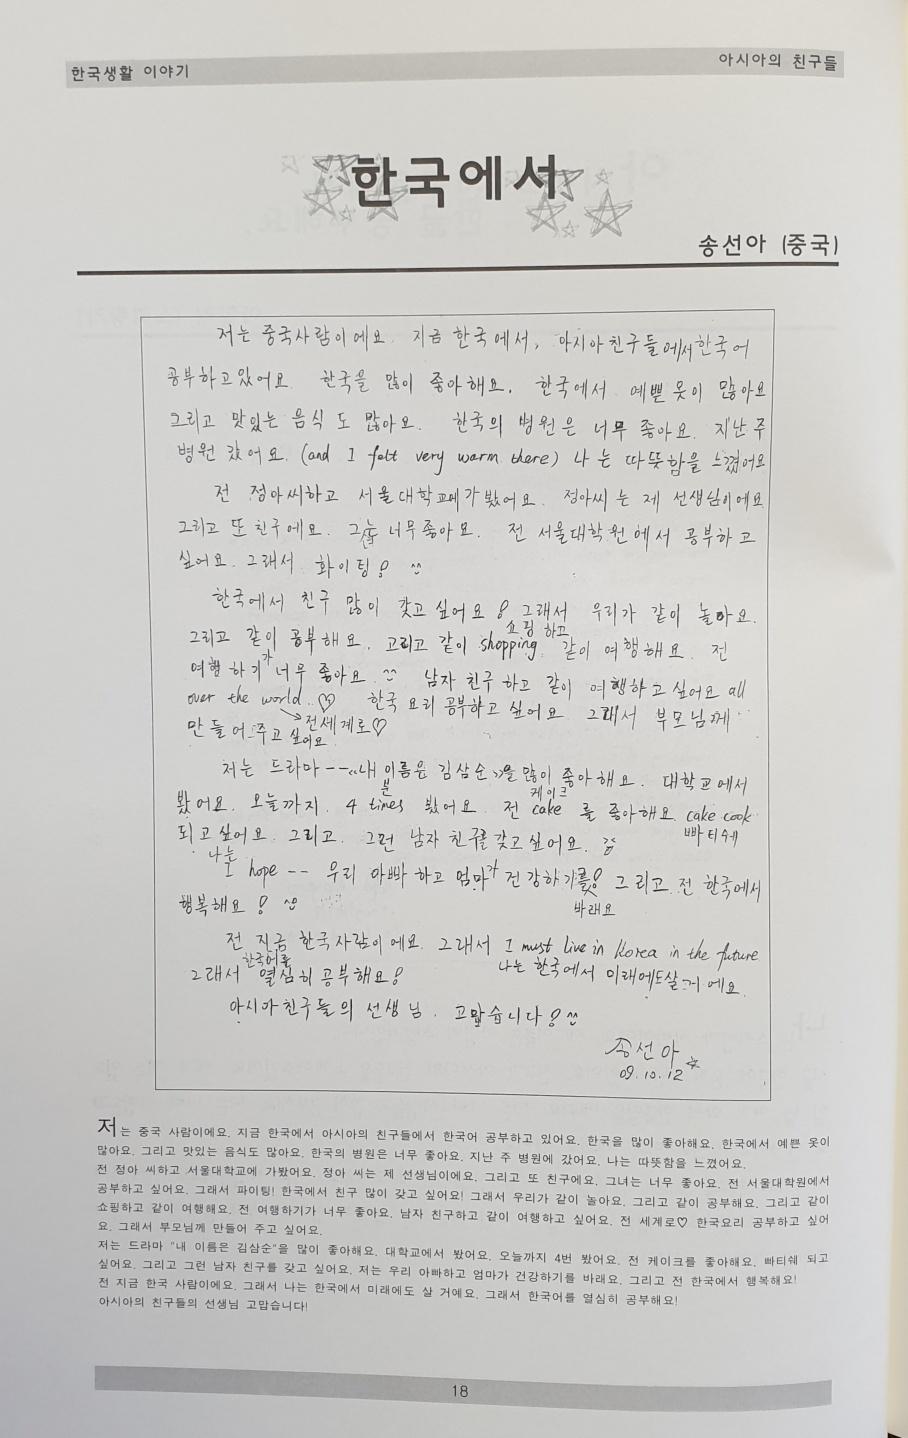 한국생활 이야기
아시아의 친구들
한국에서
송선아 (중국)
저는 중국사람이에요. 지금 한국에서, 아시아친구들에서 한국어
공부하고있어요. 한국을 많이 좋아해요. 한국에서 예쁜 옷이 많아요
그리고 맛있는 음식 도 많아요. 한국의 병원은 너무 좋아요. 지난 주
병원 갔어요. (and I felt very warm there) 나 는 따뜻함을 느꼈어요
전 정아씨하고 서울대학교에가봤어요. 정아씨 는 제 선생님이에요
그리고 또 친구에요. 그녀는 너무좋아요. 전 서울대학원에서 공부하고
싶어요. 그래서 화이팅! ^^
한국에서 친구 많이 갖고 싶어요! 그래서 우리가 같이 놀아요.
쇼핑 하고
그리고 같이 공부해요. 그리고 같이 shopping. 같이 여행해요. 전
여행하기가 너무 좋아요. ^^ 남자 친구하고 같이 여행하고 싶어요 all
over the world.. ♡ 한국 요리 공부하고 싶어요. 그래서 부모님께
전세계로♡
만들어 주고 싶어요
저는 드라마 --《내 이름은 김삼순》을 많이 좋아해요. 대학교에서
번 케이크
봤어요. 오늘까지. 4 times 봤어요. 전 cake 를 좋아해요. cake cook
빠티쉐
되고싶어요. 그리고. 그런 남자 친구를 갖고 싶어요.
나는
I hope -- 우리 아빠하고 엄마가 건강하기를! 그리고 전 한국에서
바래요
행복해요! ^^
전 지금 한국사람이에요. 그래서 I must live in Korea in the future
한국어를 나는 한국에서 미래에도살거에요.
그래서 열심히 공부해요!
아시아친구들의 선생님. 고맙습니다! ^^
송선아 ☆
09.10.12
저는 중국 사람이에요. 지금 한국에서 아시아의 친구들에서 한국어 공부하고 있어요. 한국을 많이 좋아해요. 한국에서 예쁜 옷이
많아요. 그리고 맛있는 음식도 많아요. 한국의 병원은 너무 좋아요. 지난 주 병원에 갔어요. 나는 따뜻함을 느꼈어요.
전 정아 씨하고 서울대학교에 가봤어요. 정아 씨는 제 선생님이에요. 그리고 또 친구에요. 그녀는 너무 좋아요. 전 서울대학원에서
공부하고 싶어요. 그래서 파이팅! 한국에서 친구 많이 갖고 싶어요! 그래서 우리가 같이 놀아요. 그리고 같이 공부해요. 그리고 같이
쇼핑하고 같이 여행해요. 전 여행하기가 너무 좋아요. 남자 친구하고 같이 여행하고 싶어요. 전 세계로♡ 한국요리 공부하고 싶어
요. 그래서 부모님께 만들어 주고 싶어요.
저는 드라마 "내 이름은 김삼순"을 많이 좋아해요. 대학교에서 봤어요. 오늘까지 4번 봤어요. 전 케이크를 좋아해요. 빠티쉐 되고
싶어요. 그리고 그런 남자 친구를 갖고 싶어요. 저는 우리 아빠하고 엄마가 건강하기를 바래요. 그리고 전 한국에서 행복해요!
전 지금 한국 사람이에요. 그래서 나는 한국에서 미래에도 살 거에요. 그래서 한국어를 열심히 공부해요!
아시아의 친구들의 선생님 고맙습니다!
18